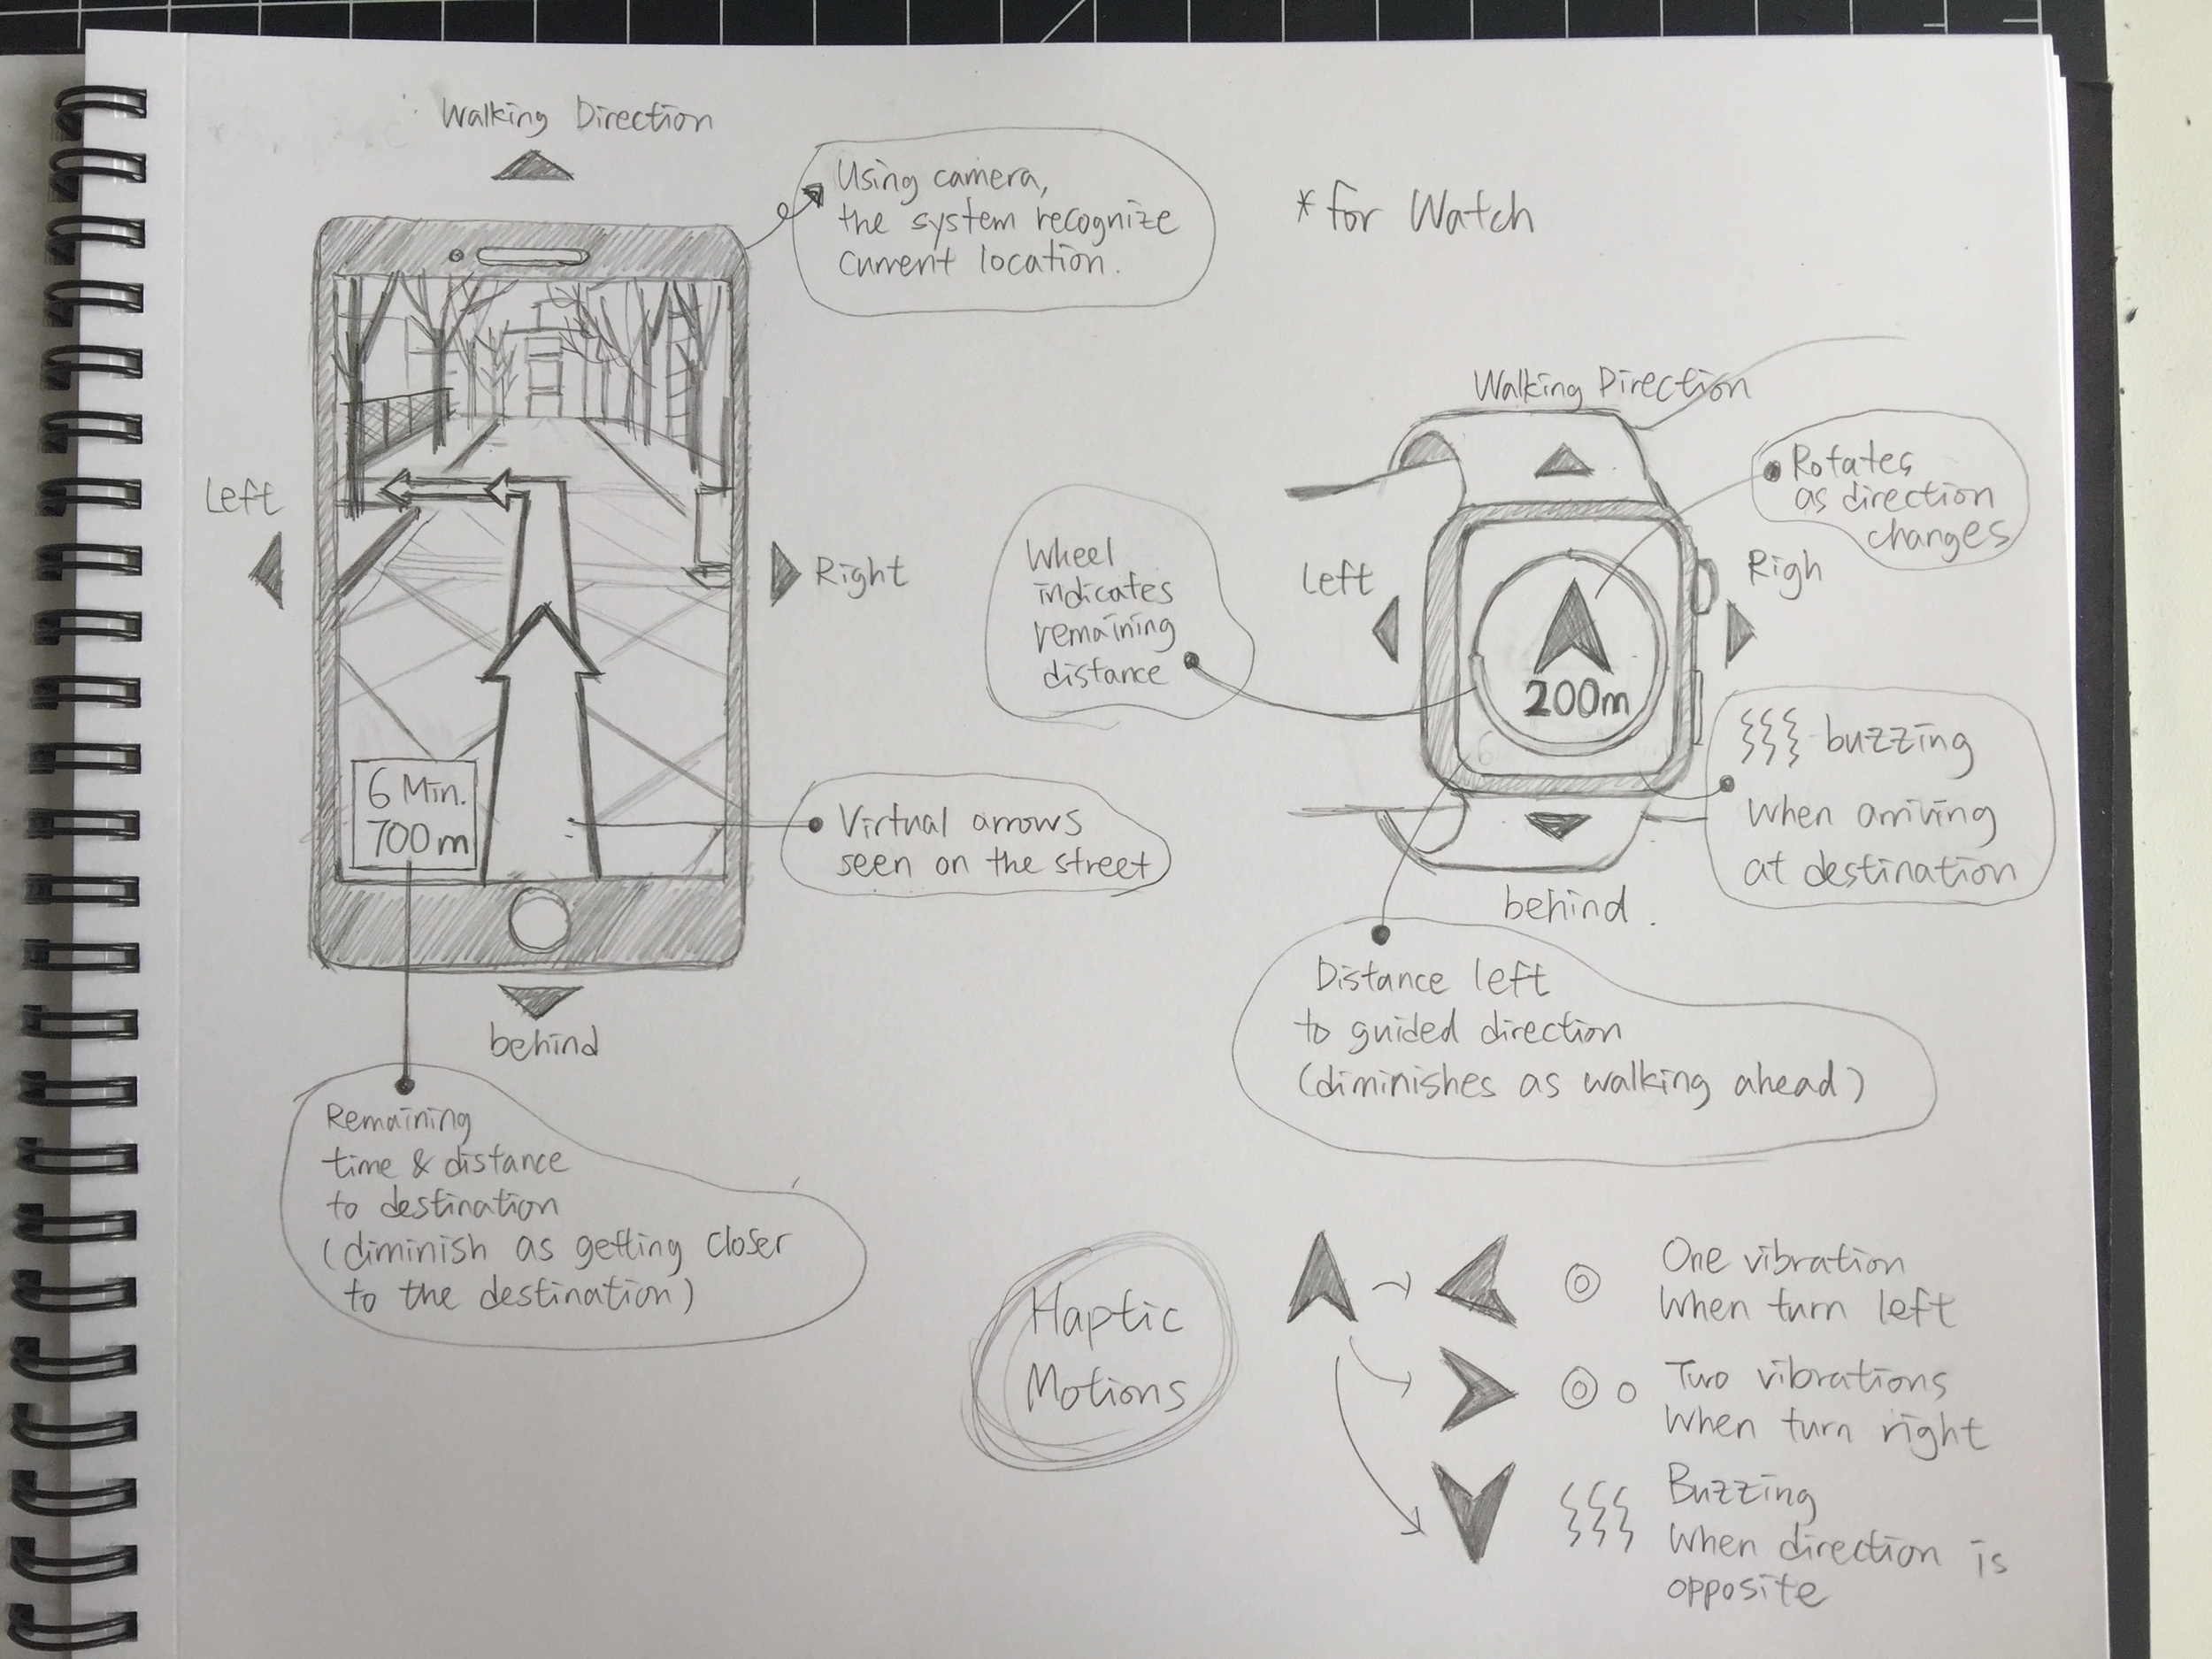 Walking Direction
Using camera,
the system recognize
current location.
Left
Right
6 Min.
700m
Virtual arrows
seen on the street
behind
Remaining
time & distance
to destination
(diminish as getting closer
to the destination)
*for Watch
Walking Direction
Rotates
as direction
changes
Wheel
indicates
remaining
distance
Left
Righ
200m
buzzing
When arriving
at destination
behind.
Distance left
to guided direction
(diminishes as walking ahead)
Haptic
Motions
One vibration
When turn left
Two vibrations
When turn right
Buzzing
When direction is
opposite